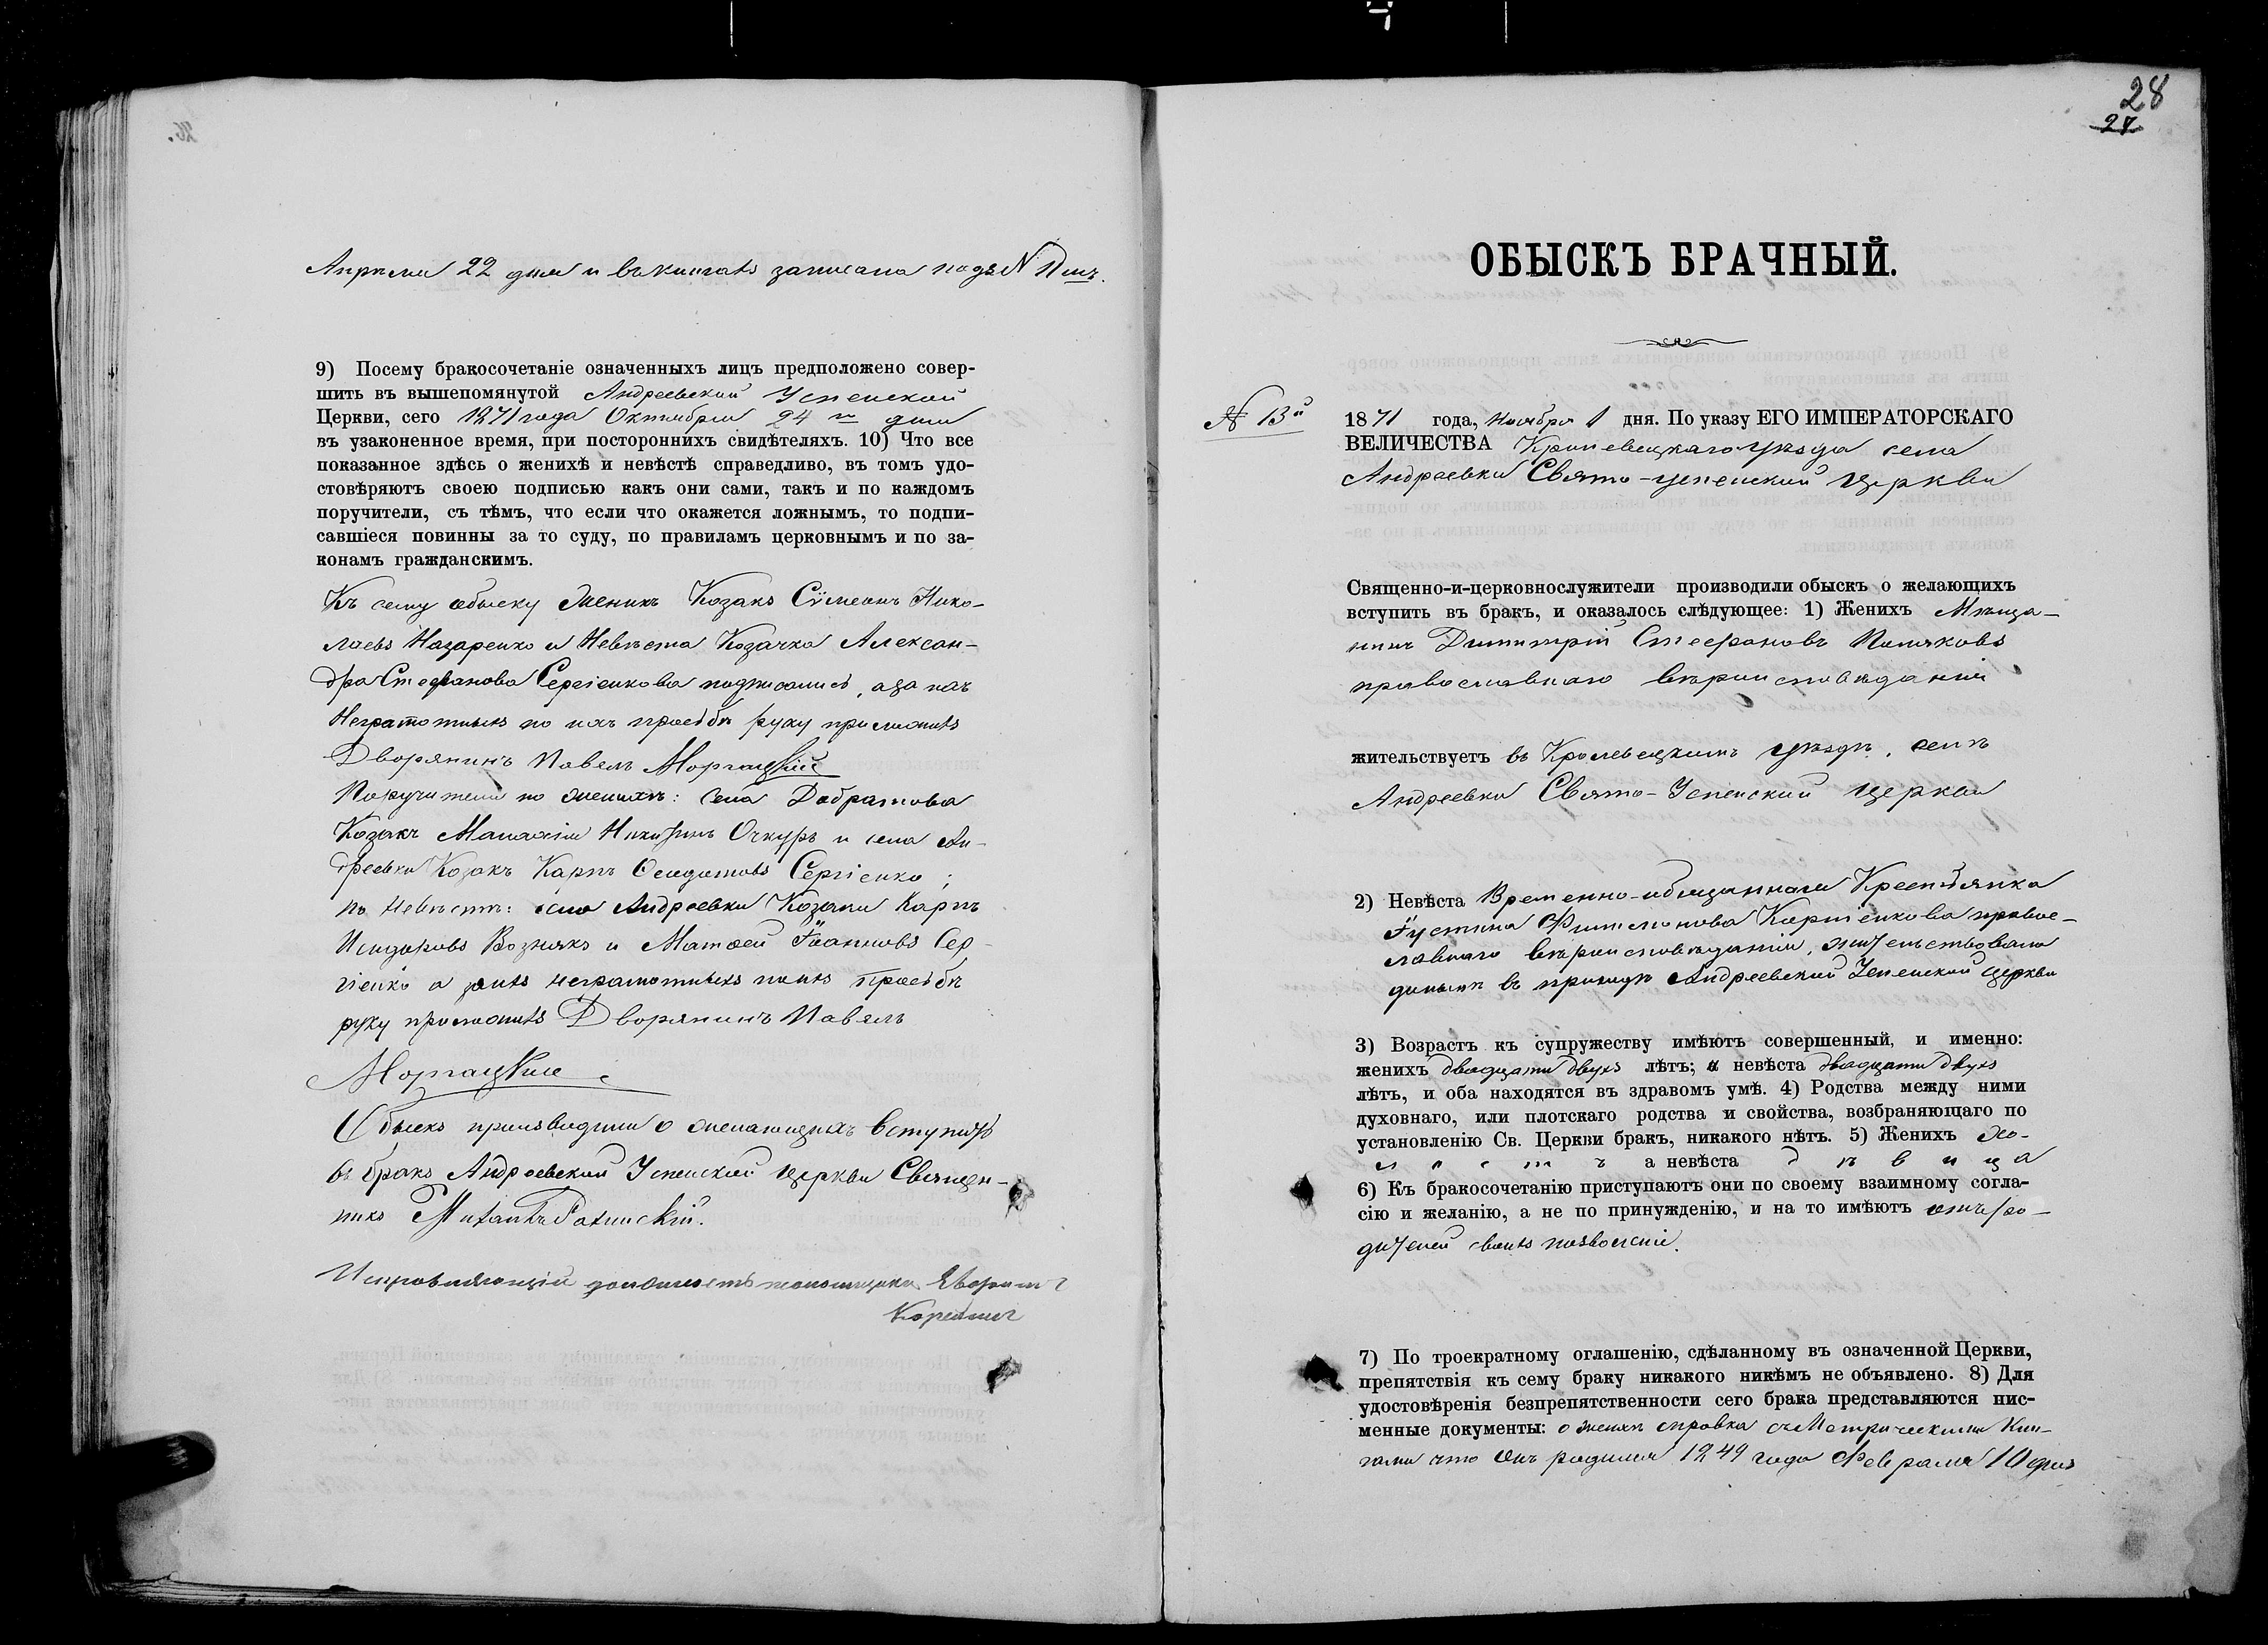 26.
Апрѣля 22 дня и въ книгахъ записана подъ N
9) Посему бракосочетаніе означенныхъ лицъ предположено совер-
шить въ вышепомянутой Андреевской Успенской
Церкви, сего 1871 года Октября 24 дня
въ узаконенное время, при постороннихъ свидѣтеляхъ. 10) Что все
показанное здѣсь о женихѣ и невѣстѣ справедливо, въ томъ удо-
стовѣряютъ своею подписью какъ они сами, такъ и по каждомъ
поручители, съ тѣмъ, что если что окажется ложнымъ, то подпи-
савшіеся повинны за то суду, по правиламъ церковнымъ и по за-
конамъ гражданскимъ.
Къ сему обыску Женихъ Козакъ Сѵмеонъ Нико-
лаевъ Назаренко и Невѣста Козачка Алексан-
дра Стефанова Сергіенкова подписались, а за нихъ
Неграмотныхъ по ихъ просьбѣ руку приложилъ
Дворянинъ Павелъ
Поручители по женихѣ: села
Козакъ Очкуръ и села Ан-
дреевки Козакъ Карпъ Сергіенко;
по Невѣстѣ: села Андреевки Козаки Карпъ
Исидоровъ Вознякъ и Матѳей Іоанновъ Сер-
гіенко а за нихъ неграмотныхъ по ихъ просьбѣ
руку приложилъ Дворянинъ Павелъ
Обыскъ производили о желающихъ вступить
въ бракъ Андреевской Успенской церкви Священ-
никъ
Исправляющій должность
28
27
ОБЫСКЪ БРАЧНЫЙ.
N 13й
1871 года, Ноября 1 дня. По указу ЕГО ИМПЕРАТОРСКАГО
ВЕЛИЧЕСТВА Кролевецкаго уѣзда села
Андреевки Свято-Успенской церкви
Священно-и-церковнослужители производили обыскъ о желающихъ
вступить въ бракъ, и оказалось слѣдующее: 1) Женихъ Мѣща-
нинъ Димитрій Стефановъ Поляковъ
православнаго вѣроисповѣданія
жительствуетъ въ Кролевецкомъ уѣздѣ, селѣ
Андреевки Свято-Успенской церкви
2) Невѣста Временно-обязанная Крестьянка
Іустина Филимонова правос-
лавнаго вѣроисповѣданія, жительствовала
въ приходѣ Андреевской Успенской церкви
3) Возрастъ къ супружеству имѣютъ совершенный, и именно:
женихъ двадцати двухъ лѣтъ; а невѣста двадцати двухъ
лѣтъ, и оба находятся въ здравомъ умѣ. 4) Родства между ними
духовнаго, или плотскаго родства и свойства, возбраняющаго по
установленію Св. Церкви бракъ, никакого нѣтъ. 5) Женихъ хо-
лостъ а невѣста дѣвица
6) Къ бракосочетанію приступаютъ они по своему взаимному согла-
сію и желанію, а не по принужденію, и на то имѣютъ отъ ро-
дителей своихъ позволеніе.
7) По троекратному оглашенію, сдѣланному въ означенной Церкви,
препятствія къ сему браку никакого никѣмъ не объявлено. 8) Для
удостовѣренія безпрепятственности сего брака представляются пис-
менные документы: о женихѣ справка съ Метрическими Кни-
гами что онъ родился 1849 года Февраля 10 дня